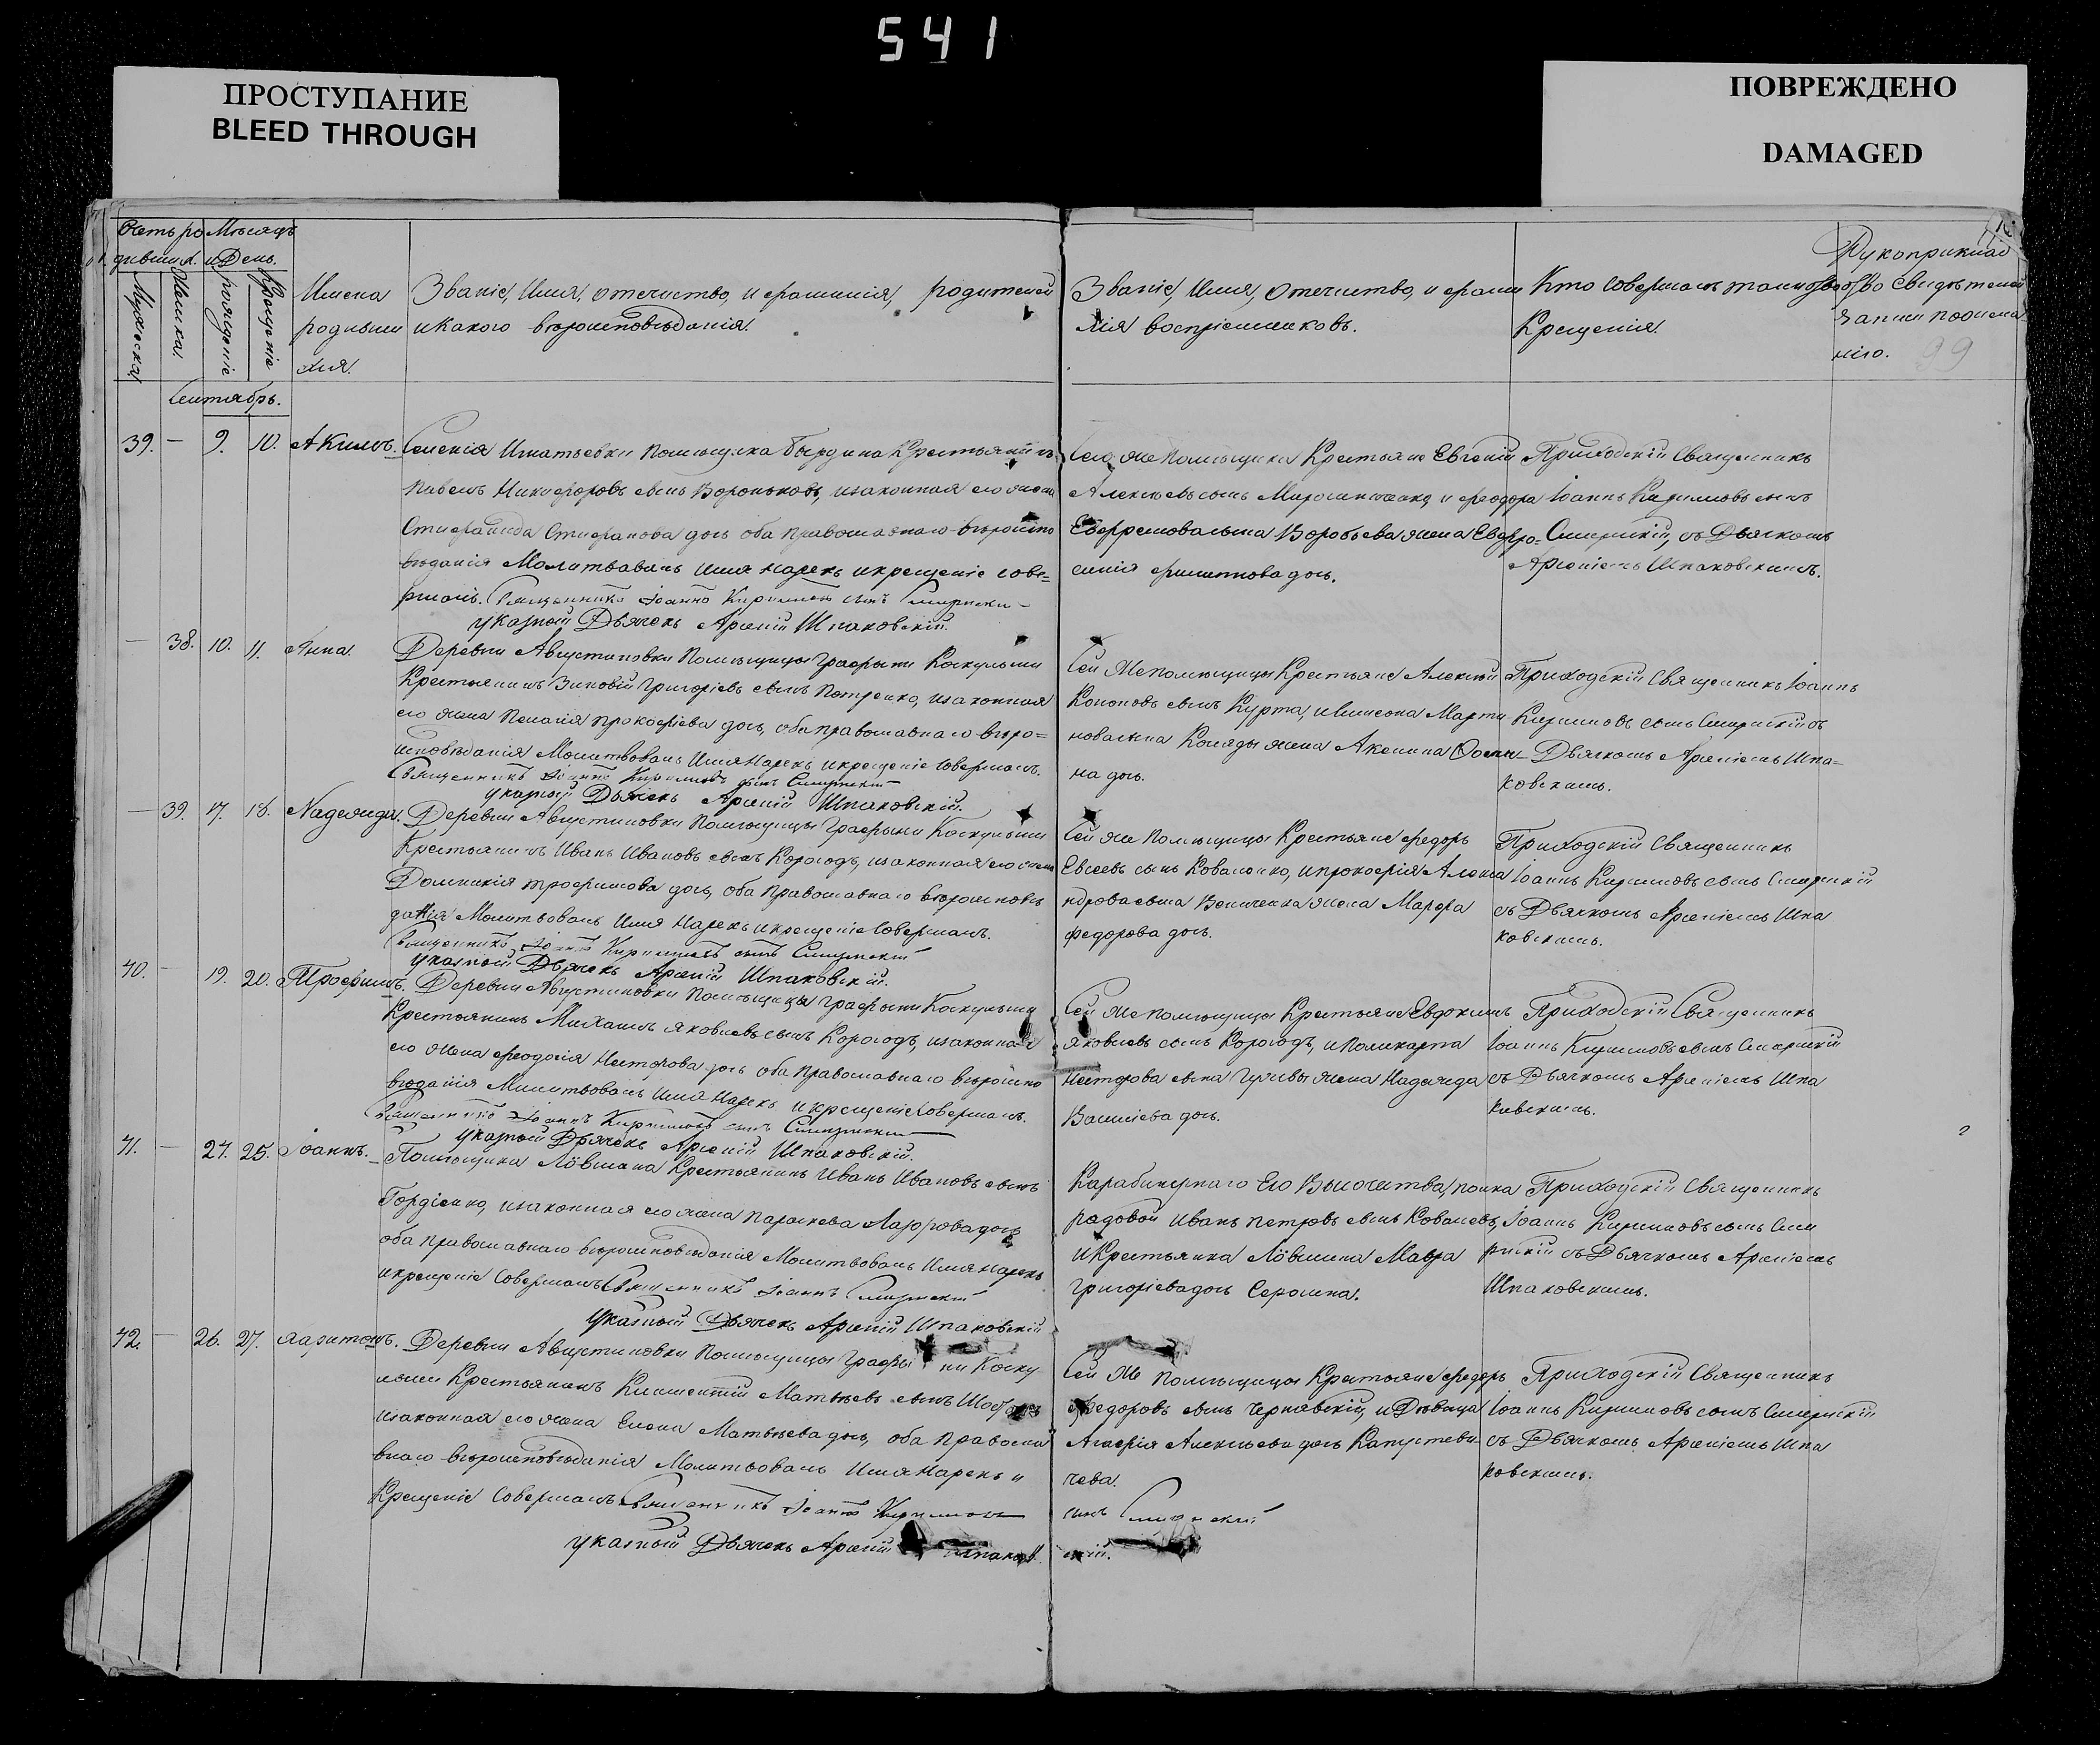 541
ПРОСТУПАНИЕ
BLEED THROUGH
ПОВРЕЖДЕНО
DAMAGED
Мѣсяцъ
и День.
Мужеска.
Женска.
рожденіе
Крещеніе
Имена
родивши
хся.
Званіе, Имя, отечиство, и фамилія, родителей
и какого вѣроисповѣданія.
Званіе, Имя, Отечиство, и фами
лія воспріемниковъ.
Кто совершалъ таинство
Крещенія.
Рукоприклад
ство свидѣтелей
записи
99
Сентябрь.
39. — 9. 10. Акимъ.
Помѣщика Крестьянинъ
Павелъ Никифоровъ сынъ Вороньковъ, и законная его жена
Степанова дочь оба православнаго вѣроиспо
вѣданія Молитвовалъ имя нарекъ и крещеніе сове=
ршалъ. Священникъ Іоаннъ Кириловъ сынъ
указный Дьячекъ Арсеній Шпаковскій.
Помѣщика Крестьяне Евгеній
Алексѣевъ сынъ и Феодора
Воробьева жена Евфро=
синія дочь.
Приходскій Священникъ
Іоаннъ Кириловъ сынъ
съ Дьячкомъ
Арсеніемъ Шпаковскимъ.
— 38. 10. 11. Анна.
Деревни Августиновки Помѣщицы Графыни
Крестьянинъ Зиновій Григоріевъ сынъ Петренко, и законная
его жена Пелагія Прокофіева дочь, оба православнаго вѣро=
исповѣданія Молитвовалъ Имя Нарекъ и крещеніе Совершалъ.
Священникъ Іоаннъ Кириловъ сынъ
указный Дьячекъ Арсеній Шпаковскій.
Сей же помѣщицы Крестьяне Алексѣй
Кононовъ сынъ Курта, и Симеона Марти
новасына Коляды жена Акелина
на дочь.
Приходскій Священникъ Іоаннъ
Кириловъ сынъ съ
Дьячкомъ Арсеніемъ Шпа=
ковскимъ.
— 39. 17. 18. Надежда.
Деревни Августиновки Помѣщицы Графыни
Крестьянинъ Иванъ Ивановъ сынъ Корогодъ, и законная его жена
Домникія Трофимова дочь, оба Православнаго вѣроисповѣ
данія Молитвовалъ Имя Нарекъ и крещеніе Совершалъ.
Священникъ Іоаннъ Кириловъ сынъ
указный Дьячекъ Арсеній Шпаковскій.
Сей же Помѣщицы Крестьяне Федоръ
Евсеевъ сынъ Коваленко, и Прокофія Алекса
ндровасына жена Марфа
Федорова дочь.
Приходскій Священникъ
Іоаннъ Кириловъ сынъ
съ Дьячкомъ Арсеніемъ Шпа
ковскимъ.
40. — 19. 20. Трофимъ.
Деревни Августиновки Помѣщицы Графыни
Крестьянинъ Михаилъ Яковлевъ сынъ Корогодъ, и законная
его жена Феодосія Несторова дочь оба Православнаго вѣроиспо
вѣданія Молитвовалъ Имя Нарекъ и крещеніе Совершалъ.
Священникъ Іоаннъ Кириловъ сынъ
указный Дьячекъ Арсеній Шпаковскій.
Сей же помѣщицы Крестьяне Евдокимъ
Яковлевъ сынъ Корогодъ, и Поликарпа
Несторова сына жена Надежда
Василіева дочь.
Приходскій Священникъ
Іоаннъ Кириловъ сынъ
съ Дьячкомъ Арсеніемъ Шпа
ковскимъ.
41. — 24. 25. Іоаннъ.
Помѣщика Лёвшина Крестьянинъ Иванъ Ивановъ сынъ
Гордіенко, и законная его жена Параскева дочь
оба православнаго вѣроисповѣданія Молитвовалъ Имя нарекъ
и крещеніе Совершалъ Священникъ Іоаннъ
Указный Дьячекъ Арсеній Шпаковскій
Карабинернаго Его Высочества полка
радовой Иванъ Петровъ сынъ Ковалевъ,
и Крестьянка Лёвшина Мавра
Григоріева дочь
Приходскій Священникъ
Іоаннъ Кириловъ сынъ
съ Дьячкомъ Арсеніемъ
Шпаковскимъ.
42. — 26. 27. Харитонъ.
Деревни Августиновки Помѣщицы Графыни
Крестьянинъ Климентій Матвѣевъ сынъ
и законная его жена Елена Матвѣева дочь, оба Правосла
внаго вѣроисповѣданія Молитвовалъ Имя Нарекъ и
Крещеніе Совершалъ Священникъ Іоаннъ Кириловъ
сынъ
указный Дьячекъ Арсеній Шпаков
скій.
Сей же помѣщицы Крестьяне Федоръ
Федоровъ сынъ Чернявскій, и Дѣвица
Агафія Алексѣева дочь Капустеви
чева.
Приходскій Священникъ
Іоаннъ Кириловъ сынъ
съ Дьячкомъ Арсеніемъ Шпа
ковскимъ.